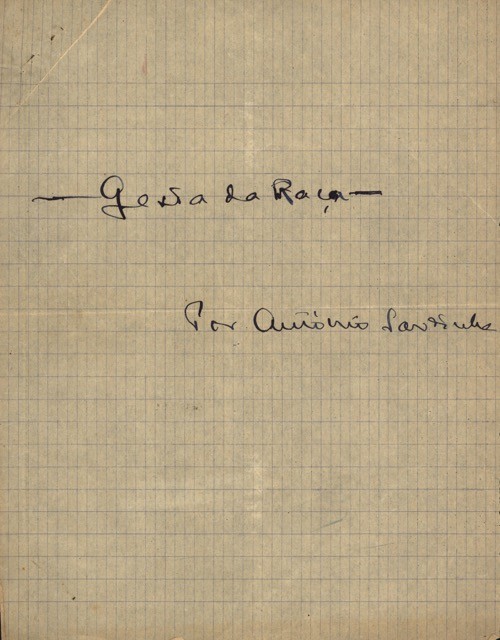 — Gesta da Raça —
Por António Sardinha